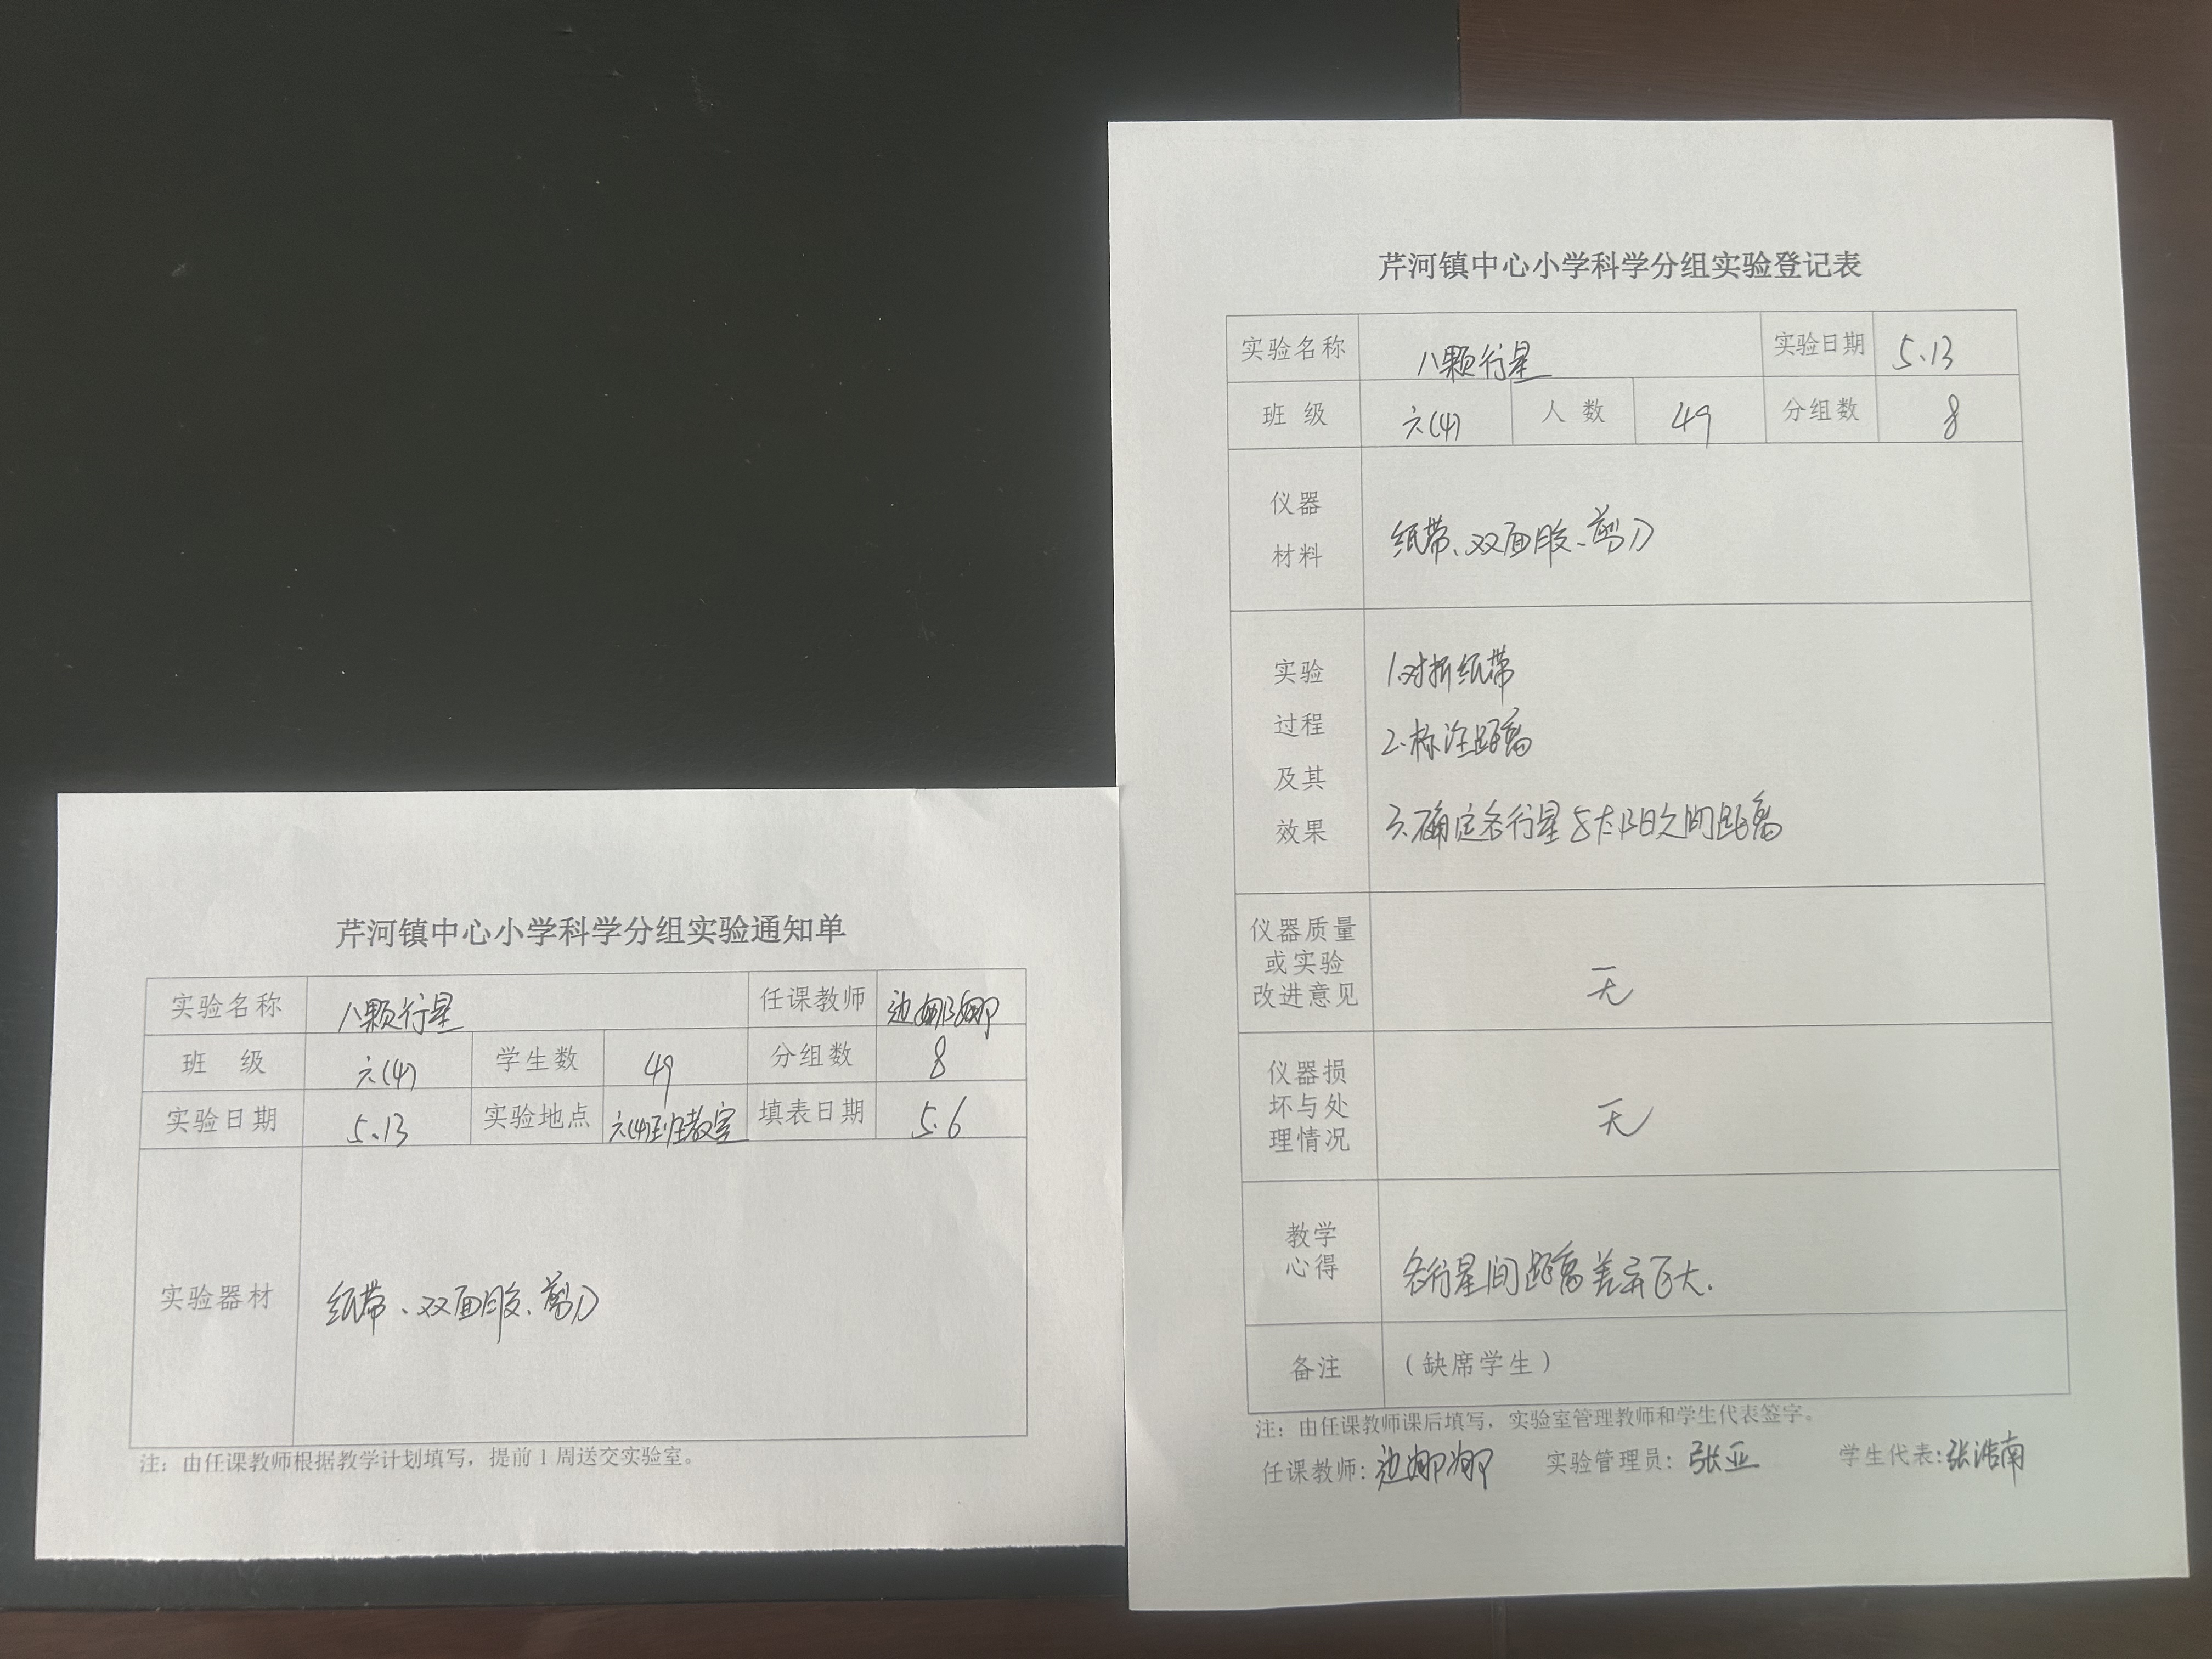 芹河镇中心小学科学分组实验通知单
实验名称 八颗行星 任课教师 边娜娜
班 级 六(4) 学生数 49 分组数 8
实验日期 5.13 实验地点 六(4)班教室 填表日期 5.6
实验器材 纸带、双面胶、剪刀
注：由任课教师根据教学计划填写，提前1周送交实验室。
芹河镇中心小学科学分组实验登记表
实验名称 八颗行星 实验日期 5.13
班 级 六(4) 人 数 49 分组数 8
仪器
材料
纸带、双面胶、剪刀
实验
过程
及其
效果
1.对折纸带
2.标注距离
3.确定各行星与太阳之间距离
仪器质量
或实验
改进意见
无
仪器损
坏与处
理情况
无
教学
心得
各行星间距离差异巨大.
备注 （缺席学生）
注：由任课教师课后填写，实验室管理教师和学生代表签字。
任课教师：边娜娜 实验管理员：张亚 学生代表：张浩南